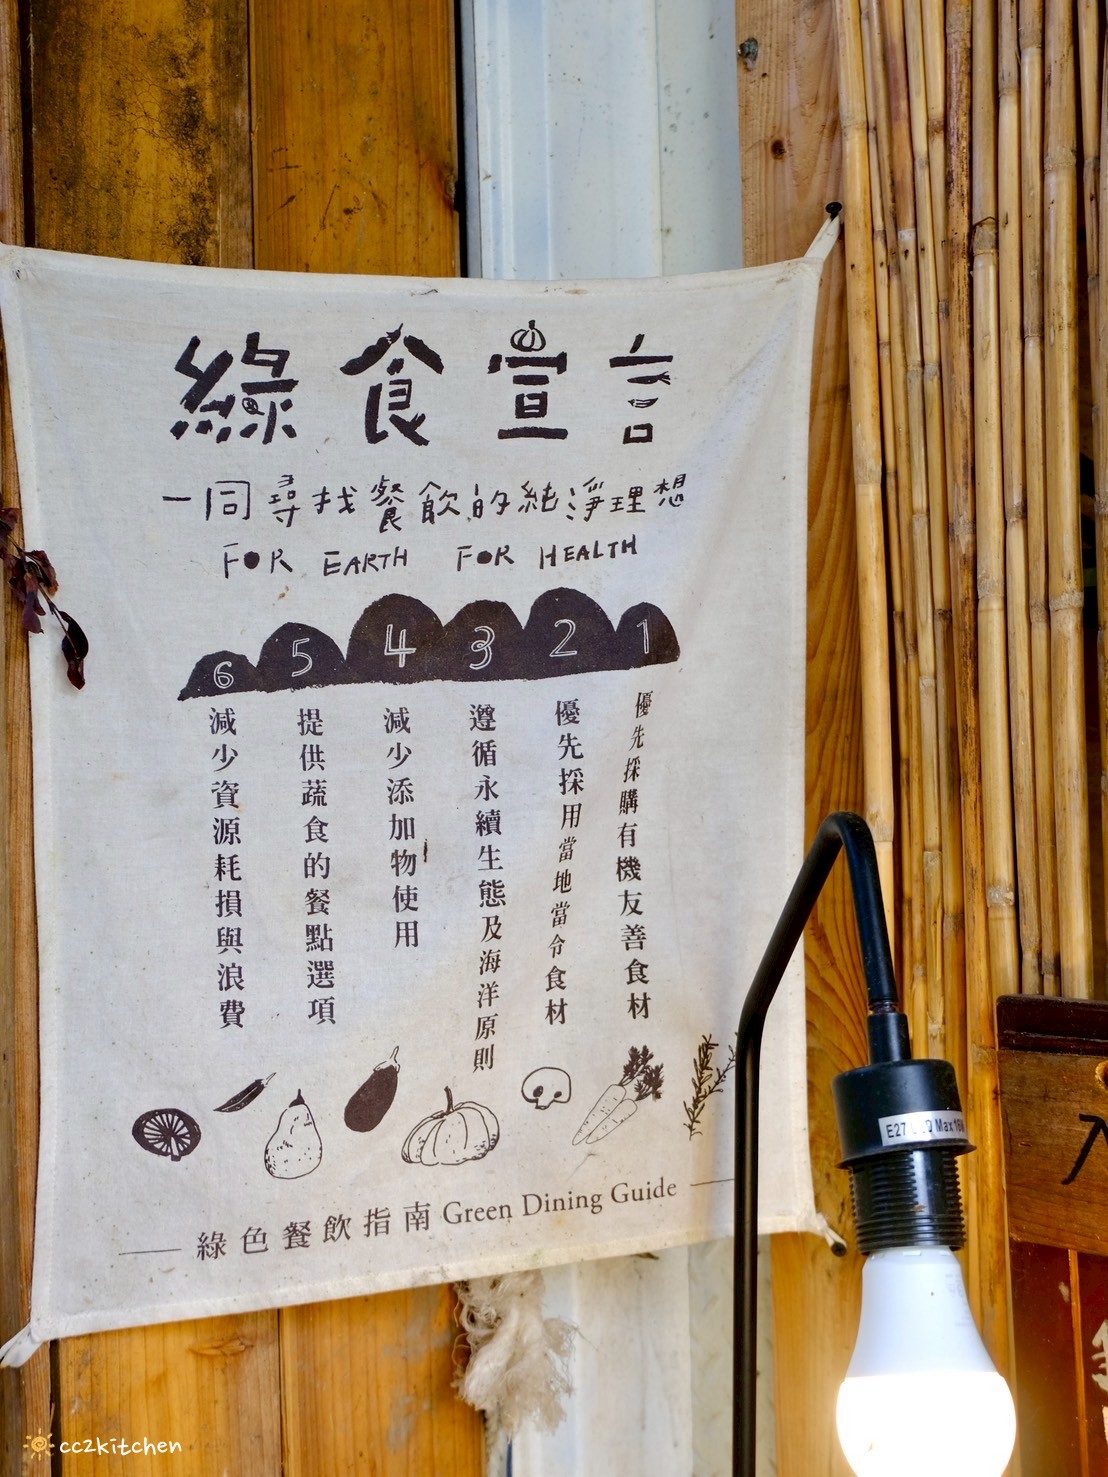 綠食宣言
一同尋找餐飲的純淨理想
FOR EARTH FOR HEALTH
1
優先採購有機友善食材
2
優先採用當地當令食材
3
遵循永續生態及海洋原則
4
減少添加物使用
5
提供蔬食的餐點選項
6
減少資源耗損與浪費
綠色餐飲指南 Green Dining Guide
E27 Max
cc2kitchen